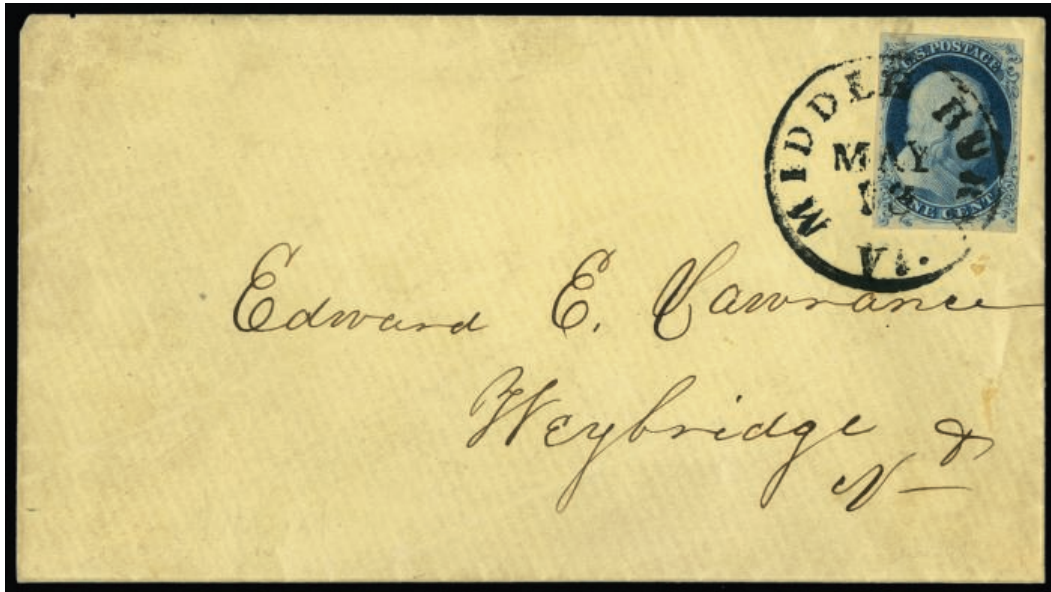 U.S. POSTAGE
ONE CENT
MIDDLEBURY
MAY
Vt.
Edward E. Lawrance
Weybridge